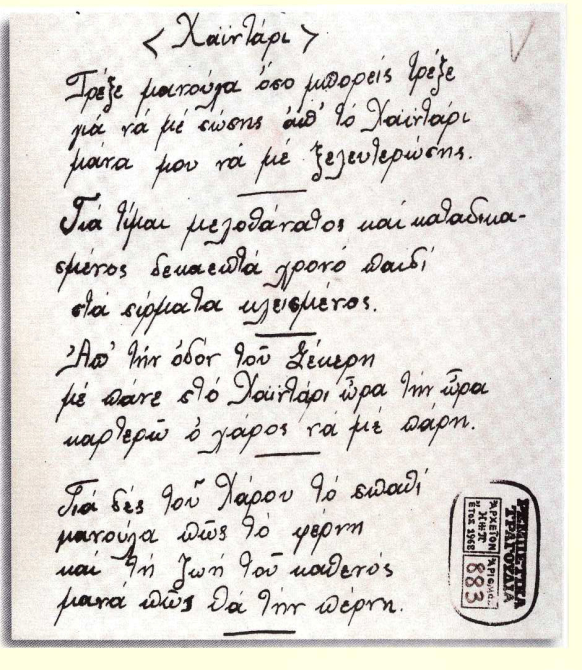 < Χαϊντάρι >
Τρέξε μανούλα όσο μπορείς τρέξε
γιά νά μέ σώσης απ' τό Χαϊντάρι
μάνα μου νά μέ ξελευτερώσης.
Γιά τίμαι μελοθάνατος καί καταδικα-
σμένος δεκαεπτά χρονό παιδί
στά σίρματα κλεισμένος.
Απ' τήν οδόν τού Σέκερη
μέ πάνε στό Χαϊντάρι ώρα τήν ώρα
καρτερώ ό χάρος νά μέ πάρη.
Γιά δές τού Χάρου τό σπαθί
μανούλα πώς τό φέρνη
καί τή ζωή τού καθενός
μανά πώς θά τήν πέρνη.
ΡΕΜΠΕΤΙΚΑ
ΤΡΑΓΟΥΔΙΑ
ΑΡΧΕΙΟΝ
ΕΤΟΣ 1968
ΑΡΙΘΜΟΣ
883